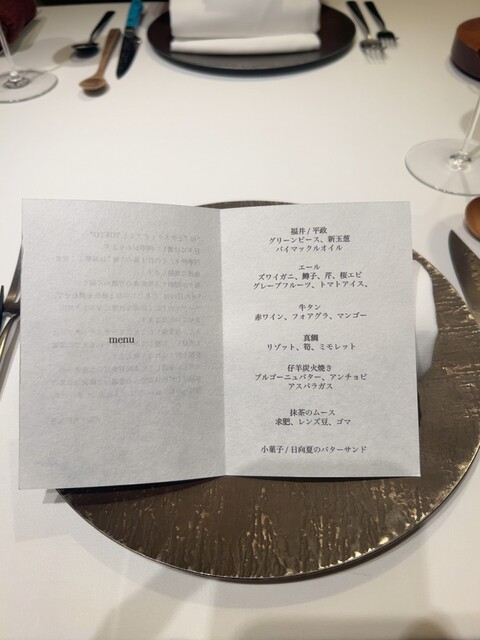 menu
福井 / 平政
グリーンピース、新玉葱
バイマックルオイル
エール
ズワイガニ、鱒子、芹、桜エビ
グレープフルーツ、トマトアイス、
牛タン
赤ワイン、フォアグラ、マンゴー
真鯛
リゾット、筍、ミモレット
仔羊炭火焼き
ブルゴーニュバター、アンチョビ
アスパラガス
抹茶のムース
求肥、レンズ豆、ゴマ
小菓子 / 日向夏のバターサンド